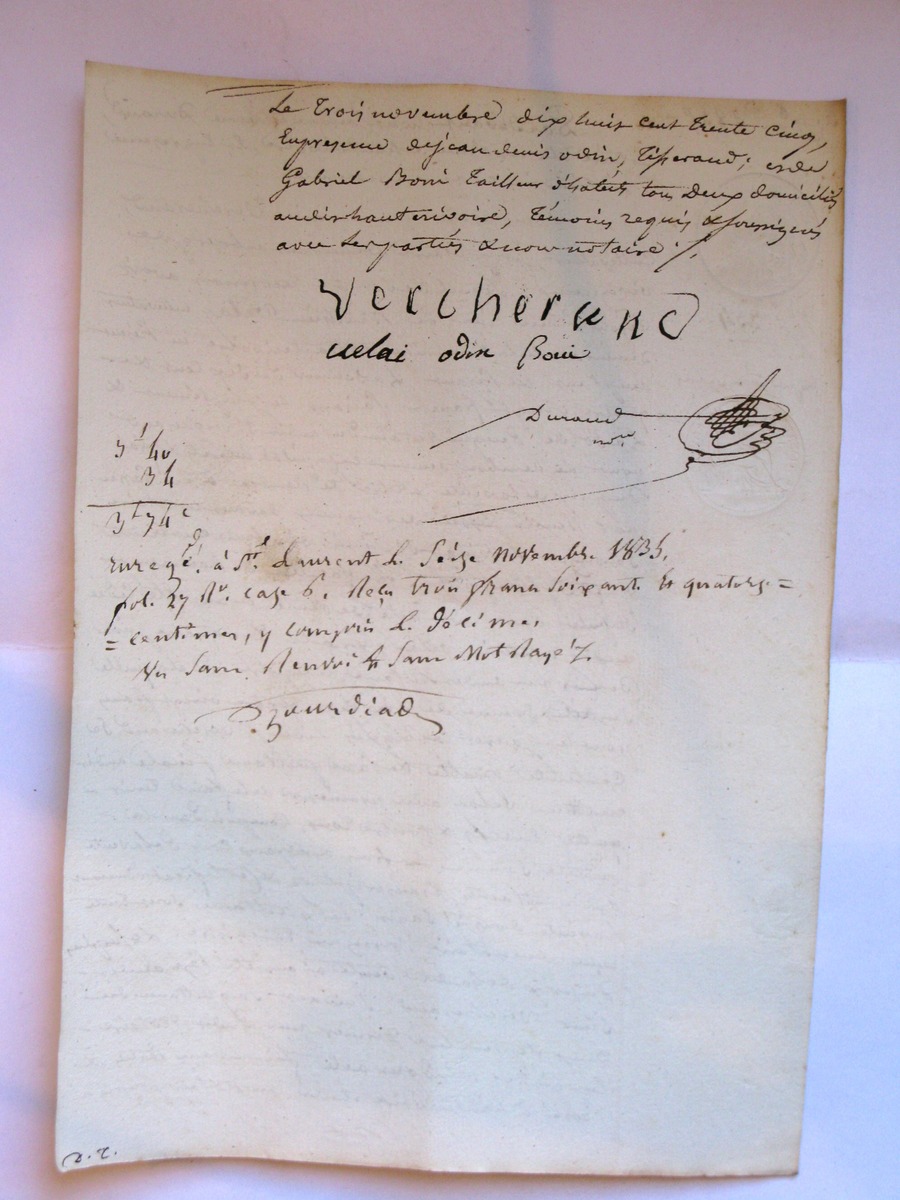 Le Trois novembre dix huit cent trente cinq,
En presence dejean denis odin, Tisserand; et de
Gabriel Boni Tailleur d'habits tous Deux domiciliés
audit hauterivoire, Témoins requis & soussignés
avec les parties & nous notaire ./.
Vercherand
odin Boni
Durand
nore
3f 40
34
3f 74c
enregé. à St. Laurent le Seize novembre 1835,
fol. 27 Ro. case 6. Reçu trois francs Soixante et quatorze =
= centimes, y compris le décime,
Vu Sans Renvoi et Sans Mot Rayé
D. T.